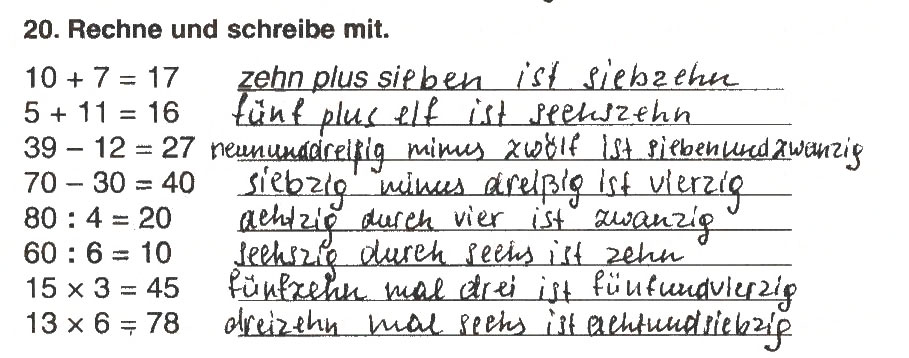 20. Rechne und schreibe mit.
10 + 7 = 17 zehn plus sieben ist siebzehn
5 + 11 = 16 fünf plus elf ist seehszehn
39 – 12 = 27 neununddreißig minus zwölf ist siebenundzwanzig
70 – 30 = 40 siebzig minus dreißig ist vierzig
80 : 4 = 20 aehtzig durch vier ist zwanzig
60 : 6 = 10 seehszig durch seehs ist zehn
15 × 3 = 45 fünfzehn mal drei ist fünfundvierzig
13 × 6 = 78 dreizehn mal seehs ist aehtundsiebzig